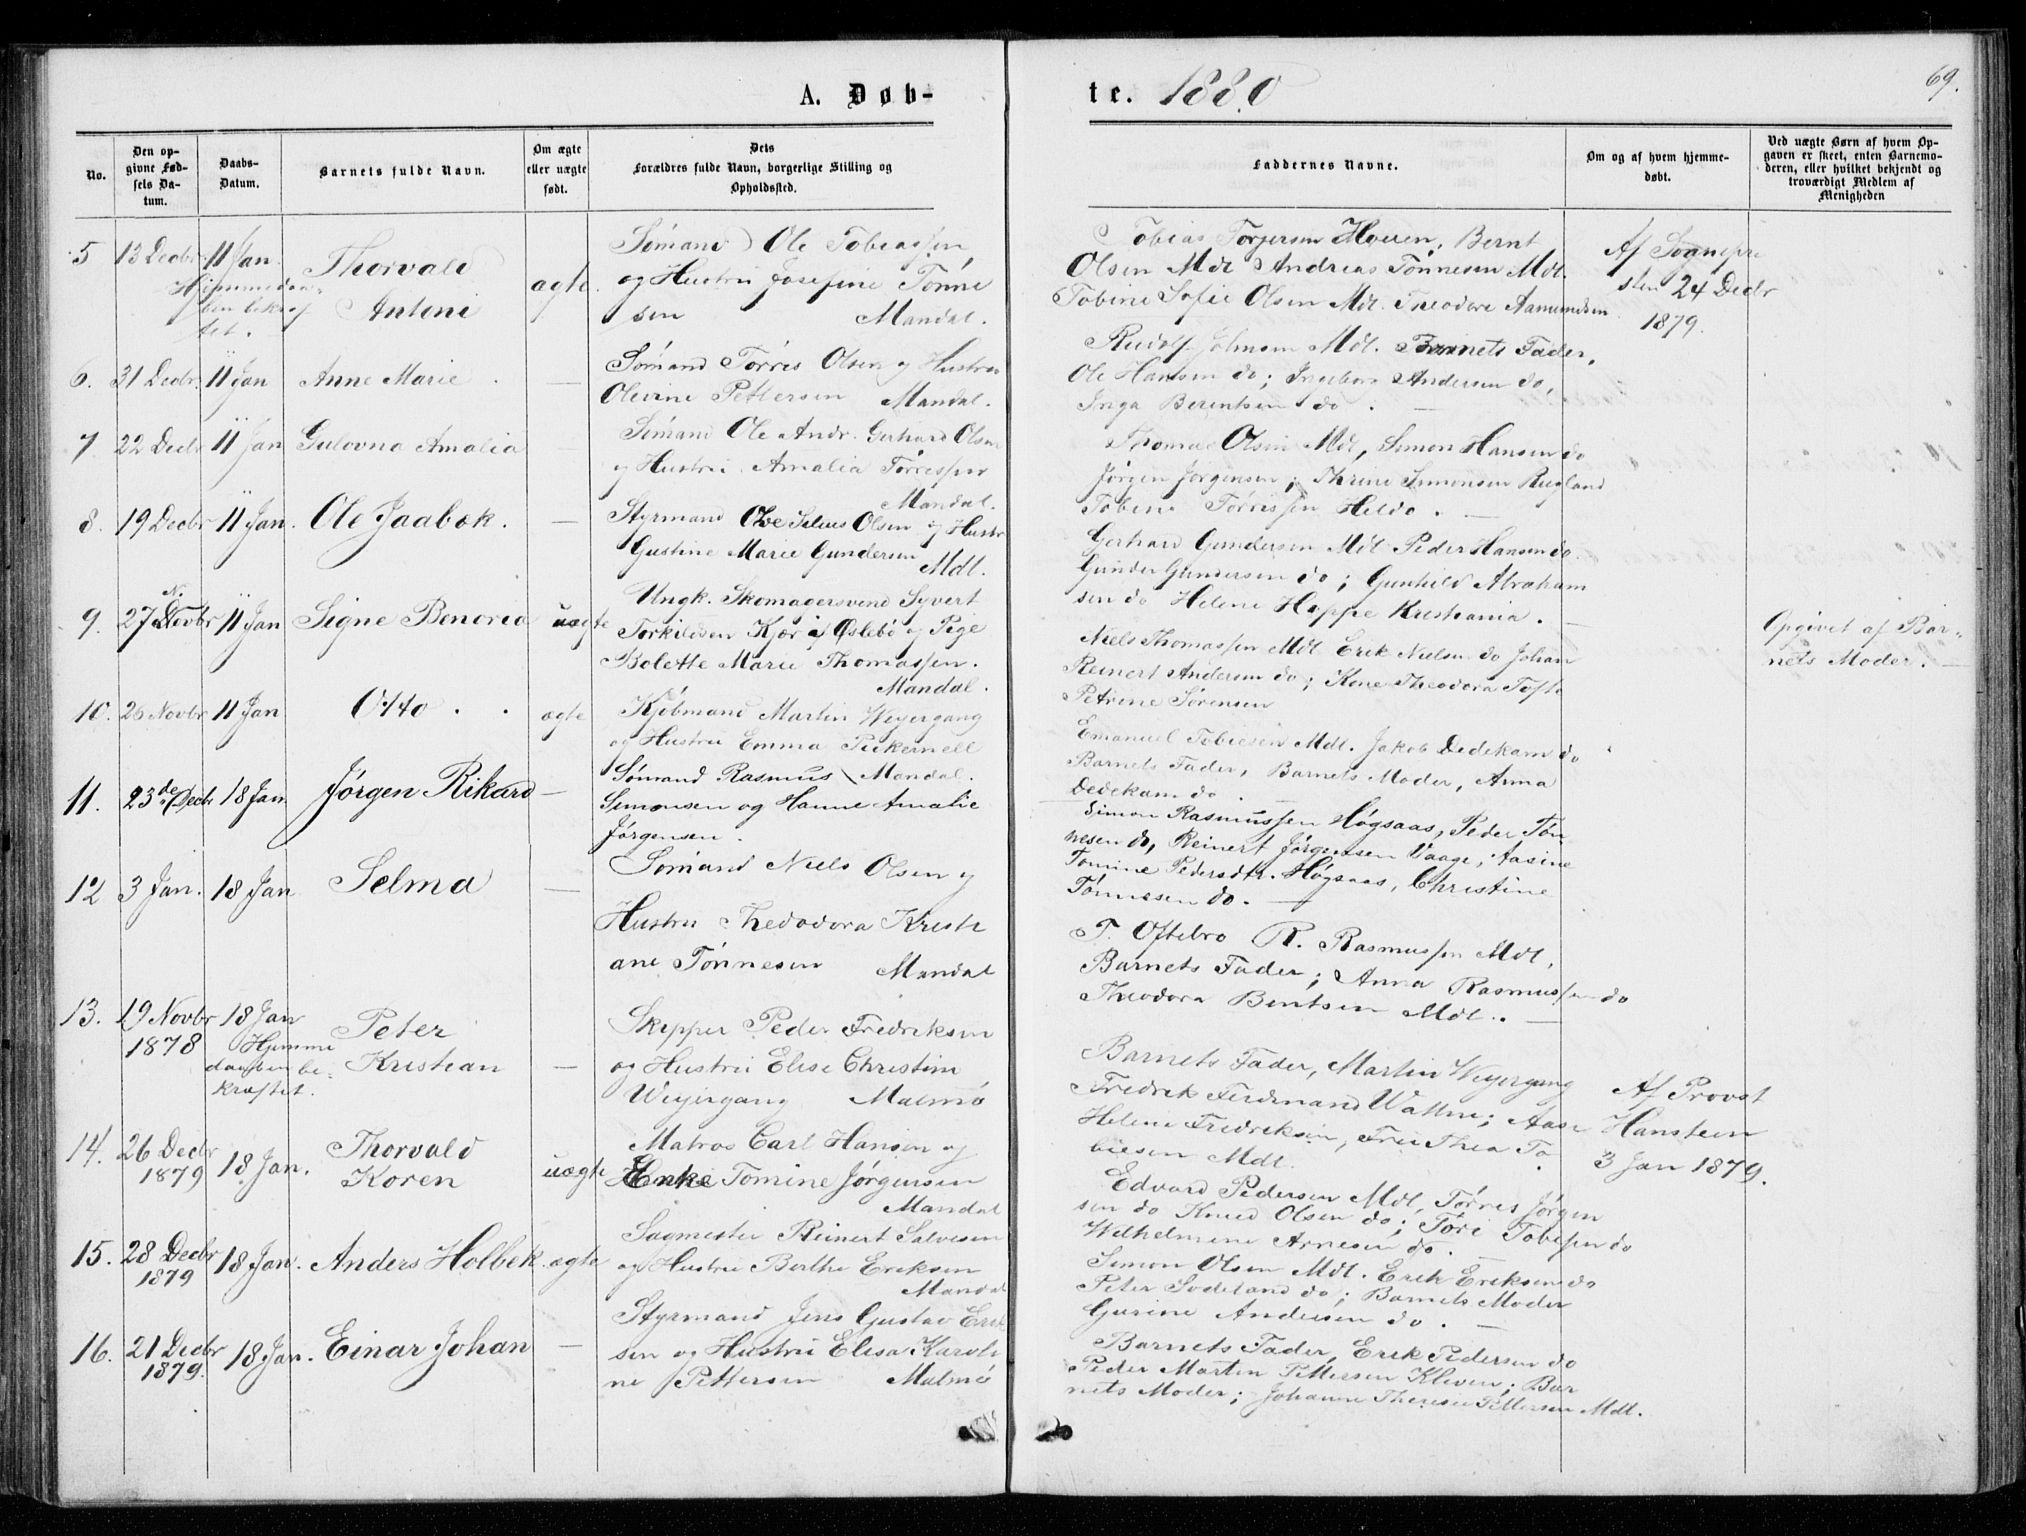 A. Døb-
te. 1880
69.
No.
Den op-
givne Fød-
sels Da-
tum.
Daabs-
Datum.
Barnets fulde Navn.
Om ægte
eller uægte
født.
Dets
Forældres fulde Navn, borgerlige Stilling og
Opholdssted.
Faddernes Navne.
Om og af hvem hjemme-
døbt.
Ved uægte Børn af hvem Op-
gaven er skeet, enten Barnemo-
deren, eller hvilket bekjendt og
troværdigt Medlem af
Menigheden
5 13 Decbr 11 Jan.
Hjemmedaa-
ben bekræf
tet.
Thorvald
Antoni
ægte.
Sømand Ole Tobiassen
og Hustru Josefine Tønne
sen Mandal.
Tobias Torjersen Hoven, Bernt
Olsen Mdl Andreas Tønnesen Mdl.
Tobine Sofie Olsen Mdl. Theodore Aanundsen
Af Sognepre
sten 24 Decbr
1879.
6. 31 Decbr. 11 Jan Anne Marie —
Sømand Tørris Olsen og Hustru
Olevine Pettersen Mandal.
Rudolf Johnsen Mdl. Barnets Fader,
Ole Hansen do; Ingeborg Andersen do,
Inga Berentsen do. —
7 22 Decbr 11 Jan Gulovna Amalia —
Sømand Ole Andr. Gerhard Olsen
og Hustru Amalia Tørressen
Mandal.
Thomas Olsen Mdl, Simon Hansen do
Jørgen Jørgensen; Thrine Simonsen Rugland
Tobine Tørrissen Hildo. —
8. 19 Decbr 11 Jan. Ole Jaabæk. —
Styrmand Ove Silius Olsen og Hustru
Gustine Marie Gundersen
Mdl.
Gerhard Gundersen Mdl Peder Hansen do.
Gunder Gundersen do; Gunhild Abraham
sen do Helene Hoppe Kristiania. —
9. 27 Novbr 11 Jan Signe Benoria uægte
Ungk. Skomagersvend Syvert
Torkildsen Kjær i Øslebø og Pige
Bolette Marie Thomassen.
Mandal.
Niels Thomassen Mdl Erik Nielsen do Johan
Reinert Andersen do; Kone Theodora Tofte
Petrine Sørensen
Opgivet af Bar-
nets Moder. —
10. 26 Novbr 11 Jan Otto. ægte
Kjøbmand Martin Weyergang
og Hustru Emma Pickernell
Mandal.
Emanuel Tobiesen Mdl. Jakob Dedekam do
Barnets Fader, Barnets Moder, Anna
Dedekam do. —
11. 23de Decbr 18 Jan. Jørgen Rikard —
Sømand Rasmus
Simonsen og Hanne Amalie
Jørgensen.
Simon Rasmussen Høgsaas, Peder Tøn-
nesen do, Reinert Jørgensen Vaage; Aasine
Tomine Pedersdtr. Høgsaas, Christine
Tønnesen do. —
12 3 Jan. 18 Jan Selma —
Sømand Niels Olsen og
Hustru Thedodora Kristi
ane Tønnesen Mandal
T. Oftebro R. Rasmussen Mdl.
Barnets Fader; Anna Rasmussen do
Theodora Bentsen Mdl. —
13. 19 Novbr 18 Jan
1878 Hjemme
daaben be-
kræftet.
Peter
Kristian —
Skipper Peder Fredriksen
og Hustru Elise Christine
Weyergang Malmø
Barnets Fader, Martin Weyergang
Fredrik Ferdinand Wattne; Aase
Helene Fredriksen, Frue Thea To
biesen Mdl.
Af Provst
Hansteen
3 Jan 1879.
14. 26 Decbr
1879 18 Jan. Thorvald
Koren uægte
Matros Carl Hansen og
Enke Tomine Jørgensen
Mandal
Edvard Pedersen Mdl, Tørres Jørgen
sen do Knud Olsen do; Tori Tobissen do
Wilhelmine Arnesen do. —
15. 28 Decbr
1879 18 Jan. Anders Holbek. ægte
Sagmester Reinert Salvesen
og Hustru Berthe Eriksen
Mandal
Simon Olsen Mdl. Erik Eriksen do
Peter Sodeland do; Barnets Moder
Gurine Andersen do. —
16. 21 Decbr
1879. 18 Jan. Einar Johan —
Styrmand Jens Gustav Erik
sen og Hustru Elisa Karoli
ne Pettersen Malmø
Barnets Fader, Erik Pedersen do
Peder Martin Pettersen Kleven; Bar
nets Moder; Johanne Therese Pettersen Mdl.